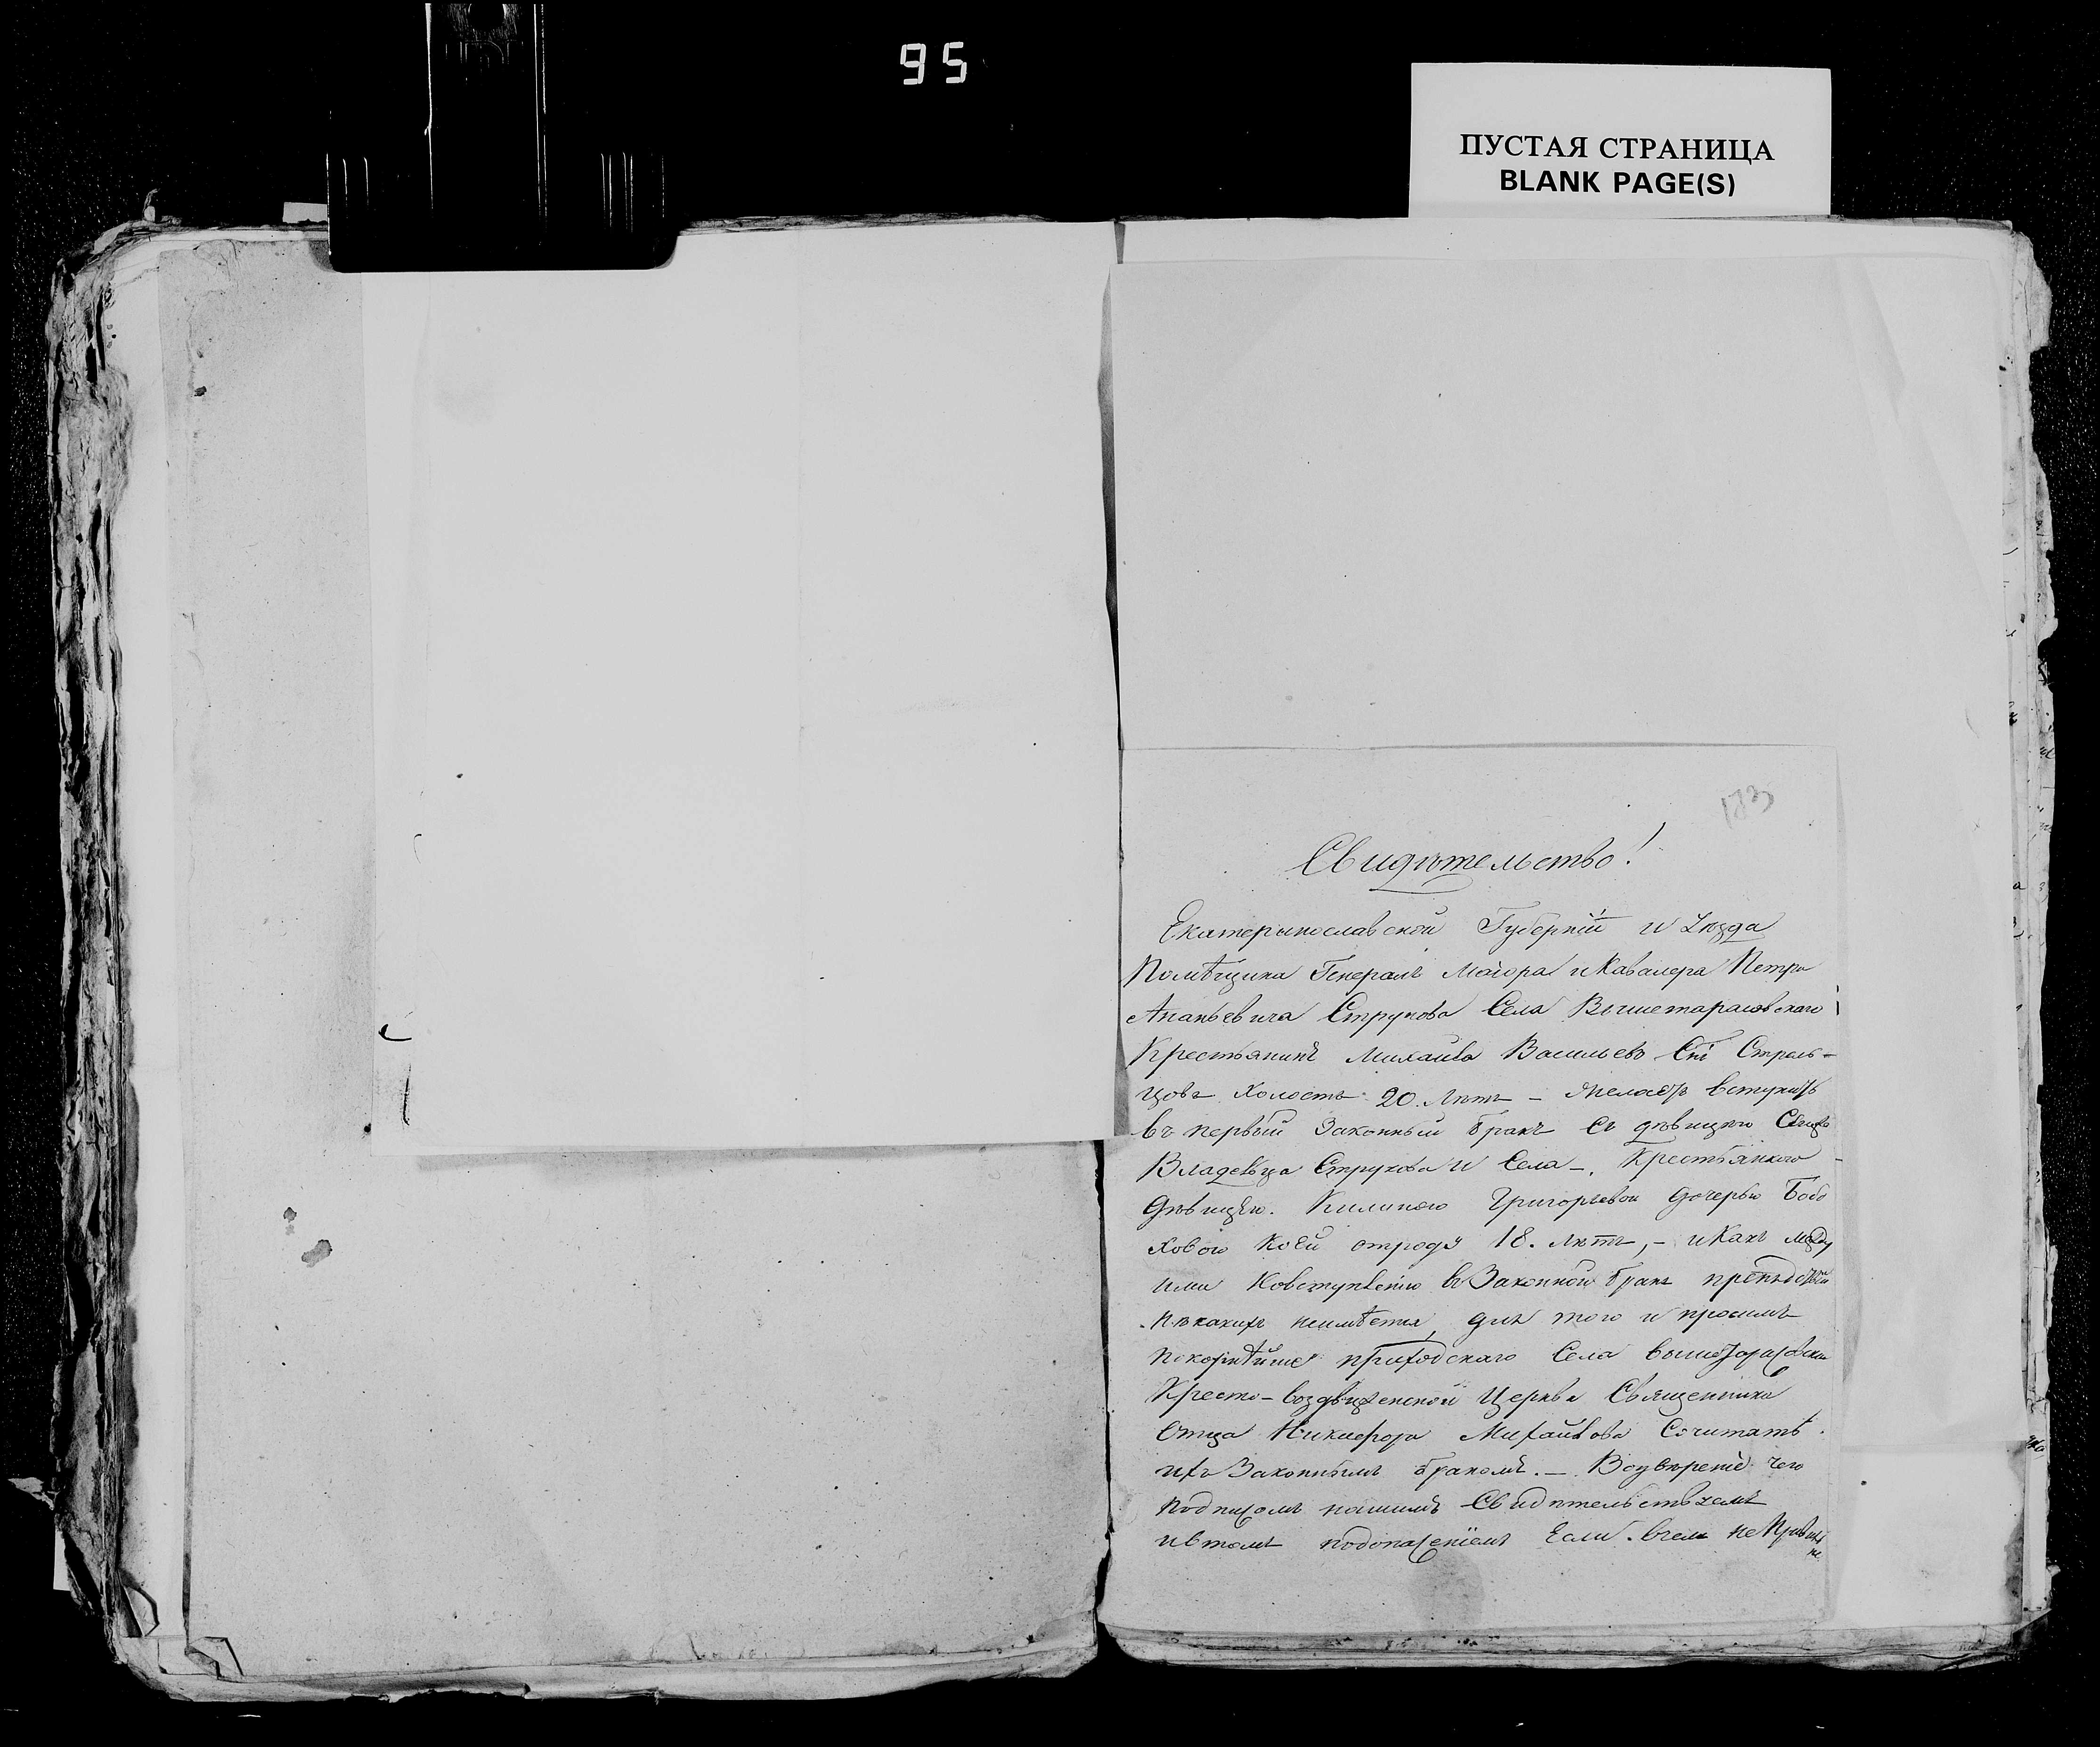 95
ПУСТАЯ СТРАНИЦА
BLANK PAGE(S)
183
Свидѣтельство!
Екатерынославской Губерніи и Уѣзда
Помѣщика Генералъ Маіора и Кавалера Петра
Ананьевича Струкова Села Вышетарасовскаго
Крестьянинъ Михаила Васильевъ Снъ Стрель-
цовъ холостъ 20. Лѣтъ – желаетъ вступить
въ первый Законный бракъ съ дѣвицею Сего
Владельца Струкова и Села –. Крестьянкою –
Дѣвицею. Килиною Григорьевой дочерью Бобо
ховою коей отроду 18. лѣтъ, – и Какъ между
ими Ковступленію въ Законной бракъ препядствій
нѣкакихъ неимѣется, для того и просимъ
покорнѣйше приходскаго Села вышетарасовской
Кресто-воздвиженской Церкви Священника
Отца Никифора Михайлова Сочитать
ихъ Законнымъ бракомъ. – Воувѣреніе чего
подписомъ нашимъ Свидѣтельствуемъ
ивтомъ подопасеніемъ Если вчемъ не